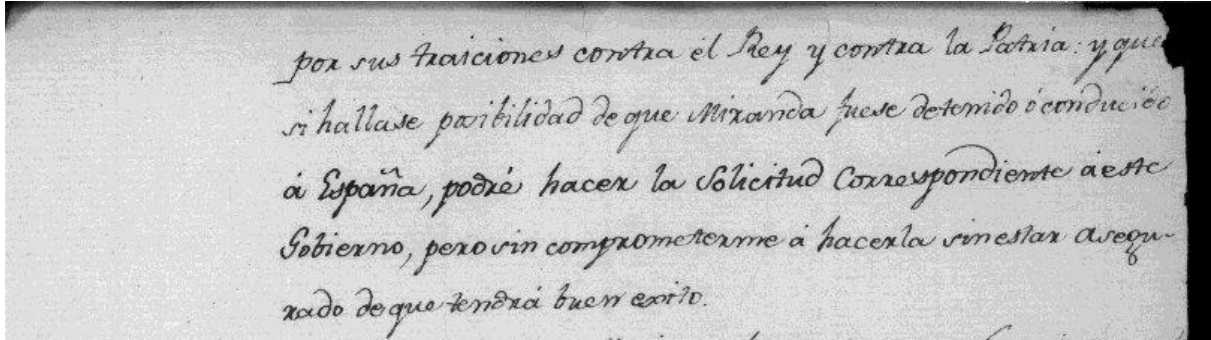 por sus traiciones contra el Rey y contra la Patria: y que
si hallase posibilidad de que Miranda fuese detenido ó conducido
á España, podré hacer la Solicitud Correspondiente á este
Gobierno, pero sin comprometerme á hacerla sin estar asegu-
rado de que tendrá buen exito.